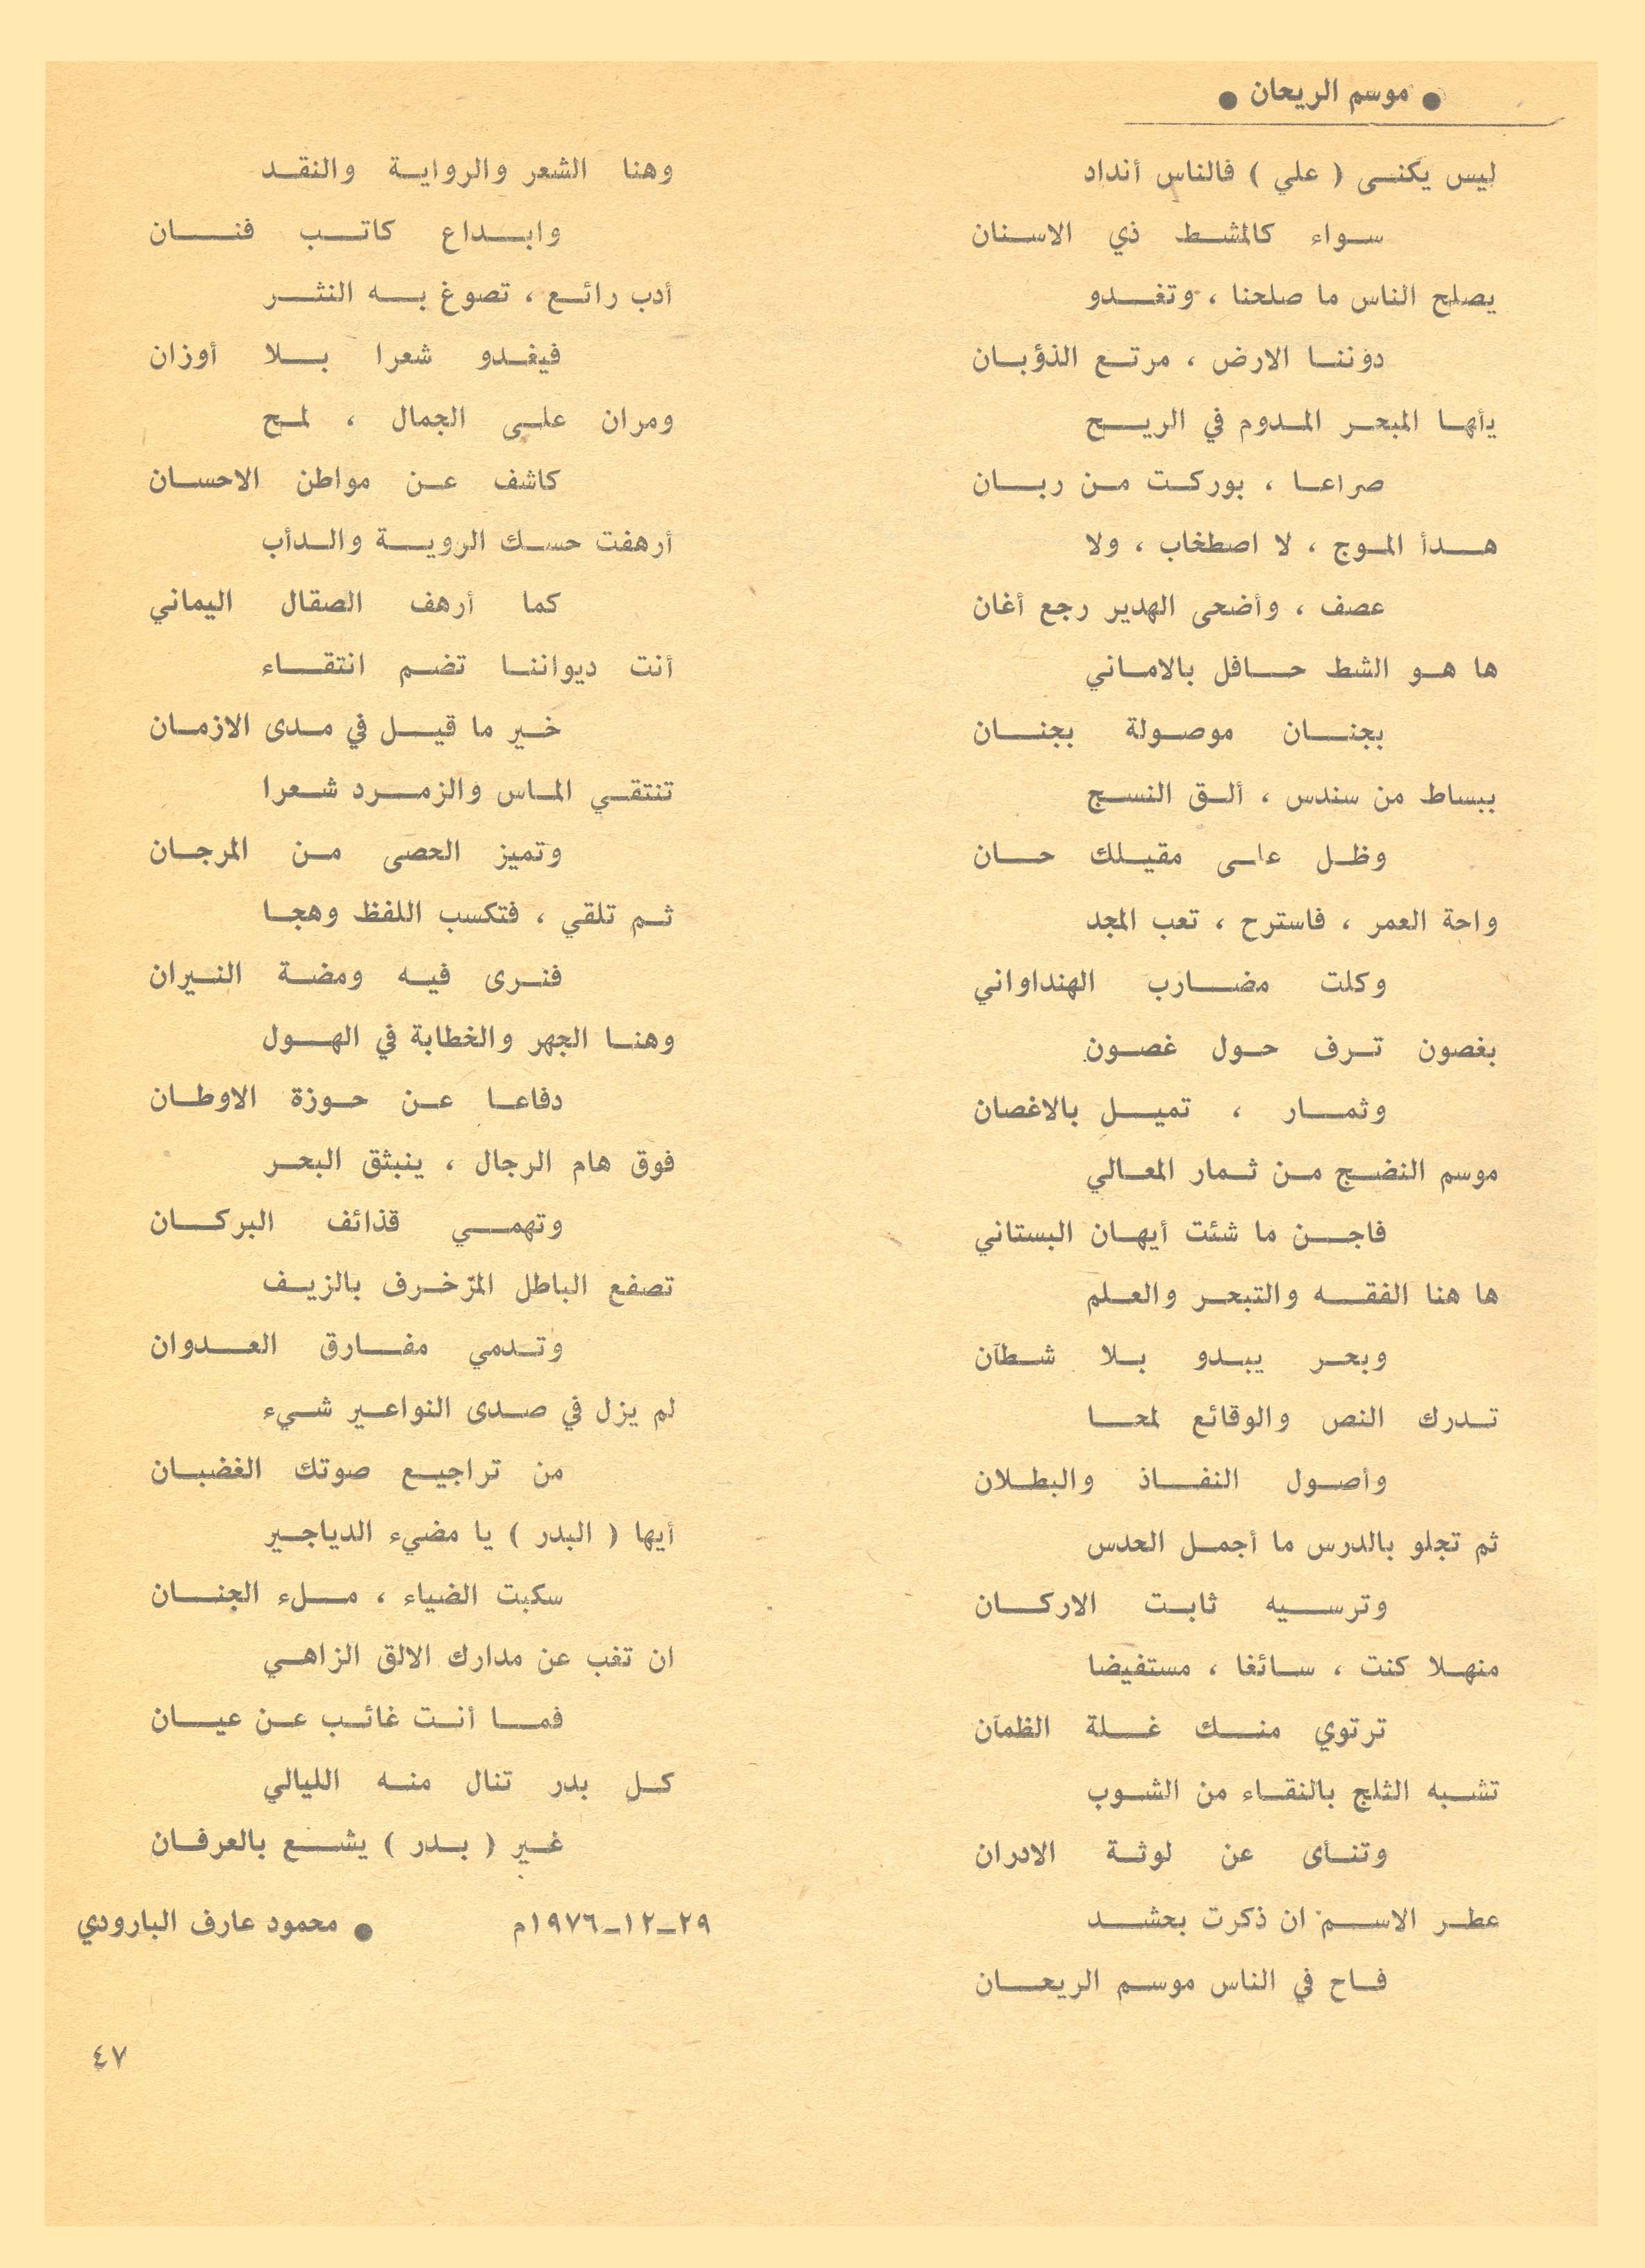 ● موسم الريحان ●
ليس يكنى ( علي ) فالناس أنداد
سواء كالمشط ذي الاسنان
يصلح الناس ما صلحنا ، وتغدو
دوننا الارض ، مرتع الذؤبان
يأيها المبحر المدوم في الريح
صراعا ، بوركت من ربان
هدأ الموج ، لا اصطخاب ، ولا
عصف ، وأضحى الهدير رجع أغان
ها هو الشط حافل بالاماني
بجنان موصولة بجنان
ببساط من سندس ، ألق النسج
وظل على مقيلك حان
واحة العمر ، فاسترح ، تعب المجد
وكلت مضارب الهنداواني
بغصون ترف حول غصون
وثمار ، تميل بالاغصان
موسم النضج من ثمار المعالي
فاجن ما شئت أيهان البستاني
ها هنا الفقه والتبحر والعلم
وبحر يبدو بلا شطآن
تدرك النص والوقائع لمحا
وأصول النفاذ والبطلان
ثم تجلو بالدرس ما أجمل الحدس
وترسيه ثابت الاركان
منهلا كنت ، سائغا ، مستفيضا
ترتوي منك غلة الظمآن
تشبه الثلج بالنقاء من الشوب
وتنأى عن لوثة الادران
عطر الاسم ان ذكرت بحشد
فاح في الناس موسم الريحان
وهنا الشعر والرواية والنقد
وابداع كاتب فنان
أدب رائع ، تصوغ به النثر
فيغدو شعرا بلا أوزان
ومران على الجمال ، لمح
كاشف عن مواطن الاحسان
أرهفت حسك الروية والدأب
كما أرهف الصقال اليماني
أنت ديواننا تضم انتقاء
خير ما قيل في مدى الازمان
تنتقي الماس والزمرد شعرا
وتميز الحصى من المرجان
ثم تلقي ، فتكسب اللفظ وهجا
فنرى فيه ومضة النيران
وهنا الجهر والخطابة في الهول
دفاعا عن حوزة الاوطان
فوق هام الرجال ، ينبثق البحر
وتهمي قذائف البركان
تصفع الباطل المزخرف بالزيف
وتدمي مفارق العدوان
لم يزل في صدى النواعير شيء
من تراجيع صوتك الغضبان
أيها ( البدر ) يا مضيء الدياجير
سكبت الضياء ، ملء الجنان
ان تغب عن مدارك الالق الزاهي
فما أنت غائب عن عيان
كل بدر تنال منه الليالي
غير ( بدر ) يشع بالعرفان
٢٩-١٢-١٩٧٦م ● محمود عارف البارودي
٤٧